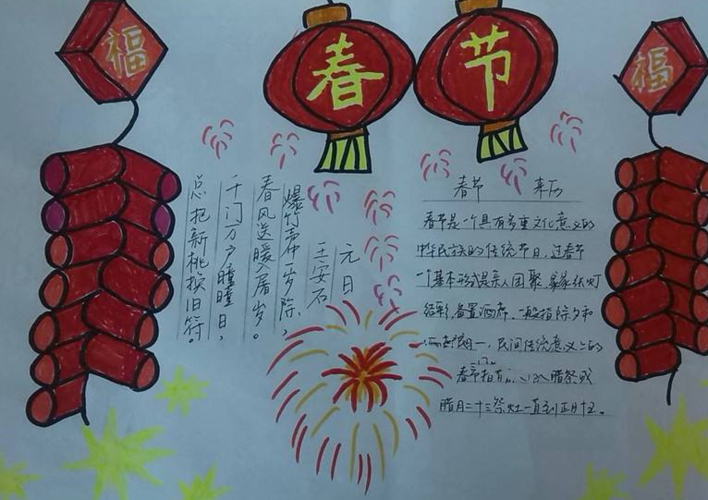 福
春节
福
元日
王安石
爆竹声中一岁除，
春风送暖入屠岁。
千门万户曈曈日，
总把新桃换旧符。
春节 来历
春节是一个具有多重文化意义的
中华民族的传统节日，过春节
一个基本形式是亲人团聚，家家张灯
结彩，备置酒席，一般指除夕和
初一，民间传统意义上的
春节指从 腊祭或
腊月二十三祭灶一直到正月十五。